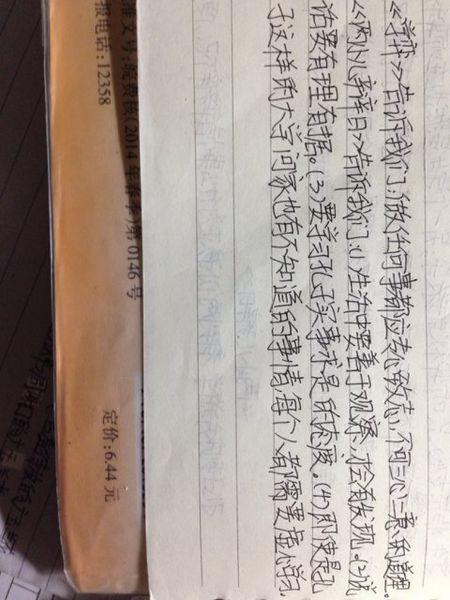 《学弈》告诉我们:做任何事都应专心致志,不可三心二意的道理.
《两小儿辩日》告诉我们:(1)生活中要善于观察,才会有发现.(2)说
话要有理有据。(3)要学习孔子实事求是的态度。(4)即使是孔
子这样的大学问家也有不知道的事情,每个人都需要虚心学习.
准文号:皖费核(2014年春季)第0146号
报电话:12358
定价:6.44元